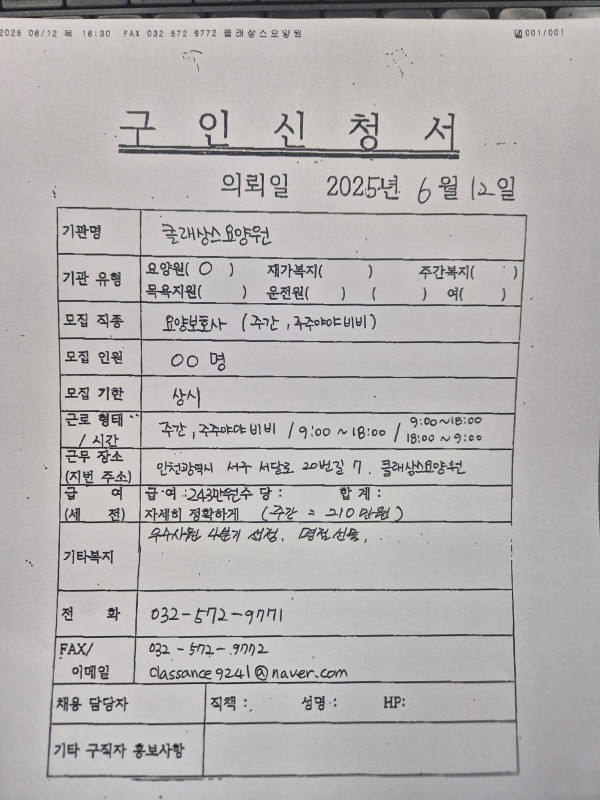 2025 06/12 목 16:30 FAX 032 572 9772 클래상스요양원 001/001
구 인 신 청 서
의뢰일 2025년 6월 12일
기관명 클래상스요양원
기관 유형 요양원( ○ ) 재가복지( ) 주간복지( )
목욕지원( ) 운전원( ) ( ) 여( )
모집 직종 요양보호사 (주간, 주주야야비비)
모집 인원 00 명
모집 기한 상시
근로 형태 / 시간 주간, 주주야야비비 / 9:00 ~ 18:00 / 9:00~18:00
18:00 ~ 9:00
근무 장소 (지번 주소) 인천광역시 서구 서달로 20번길 7. 클래상스요양원
급 여 급여 : 243만원 수 당 : 합 계 :
(세 전) 자세히 정확하게 (주간 = 210만원)
기타복지 우수사원 4분기 선정, 명절선물,
전 화 032-572-9771
FAX/ 032-572-9772
이메일 classance9241@naver.com
채용 담당자 직책 : 성명 : HP:
기타 구직자 홍보사항